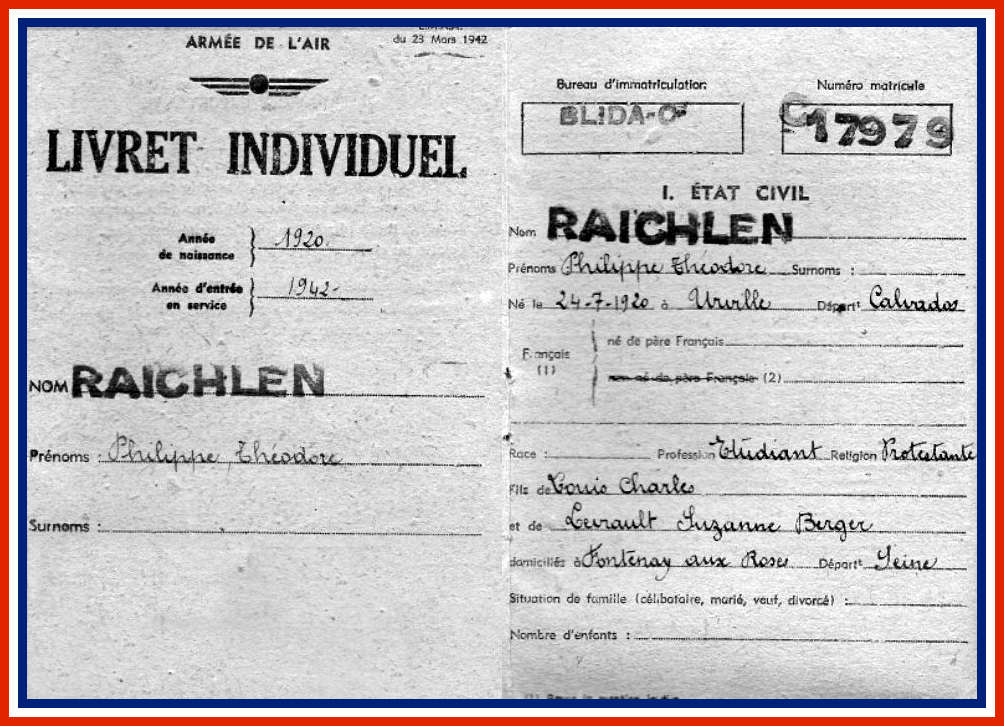 ARMÉE DE L'AIR
du 23 Mars 1942
LIVRET INDIVIDUEL
Année de naissance 1920
Année d'entrée en service 1942
NOM RAICHLEN
Prénoms : Philippe, Théodore
Surnoms :
Bureau d'immatriculation
BLIDA-
Numéro matricule
C 17979
I. ÉTAT CIVIL
Nom RAICHLEN
Prénoms Philippe Théodore Surnoms :
Né le 24-7-1920 à Urville Départt Calvados
Français (1)
né de père Français
non né de père Français (2)
Race : Profession Etudiant Religion Protestante
Fils de Louis Charles
et de Levrault Suzanne Berger
domiciliés à Fontenay aux Roses Départt Seine
Situation de famille (célibataire, marié, veuf, divorcé) :
Nombre d'enfants :